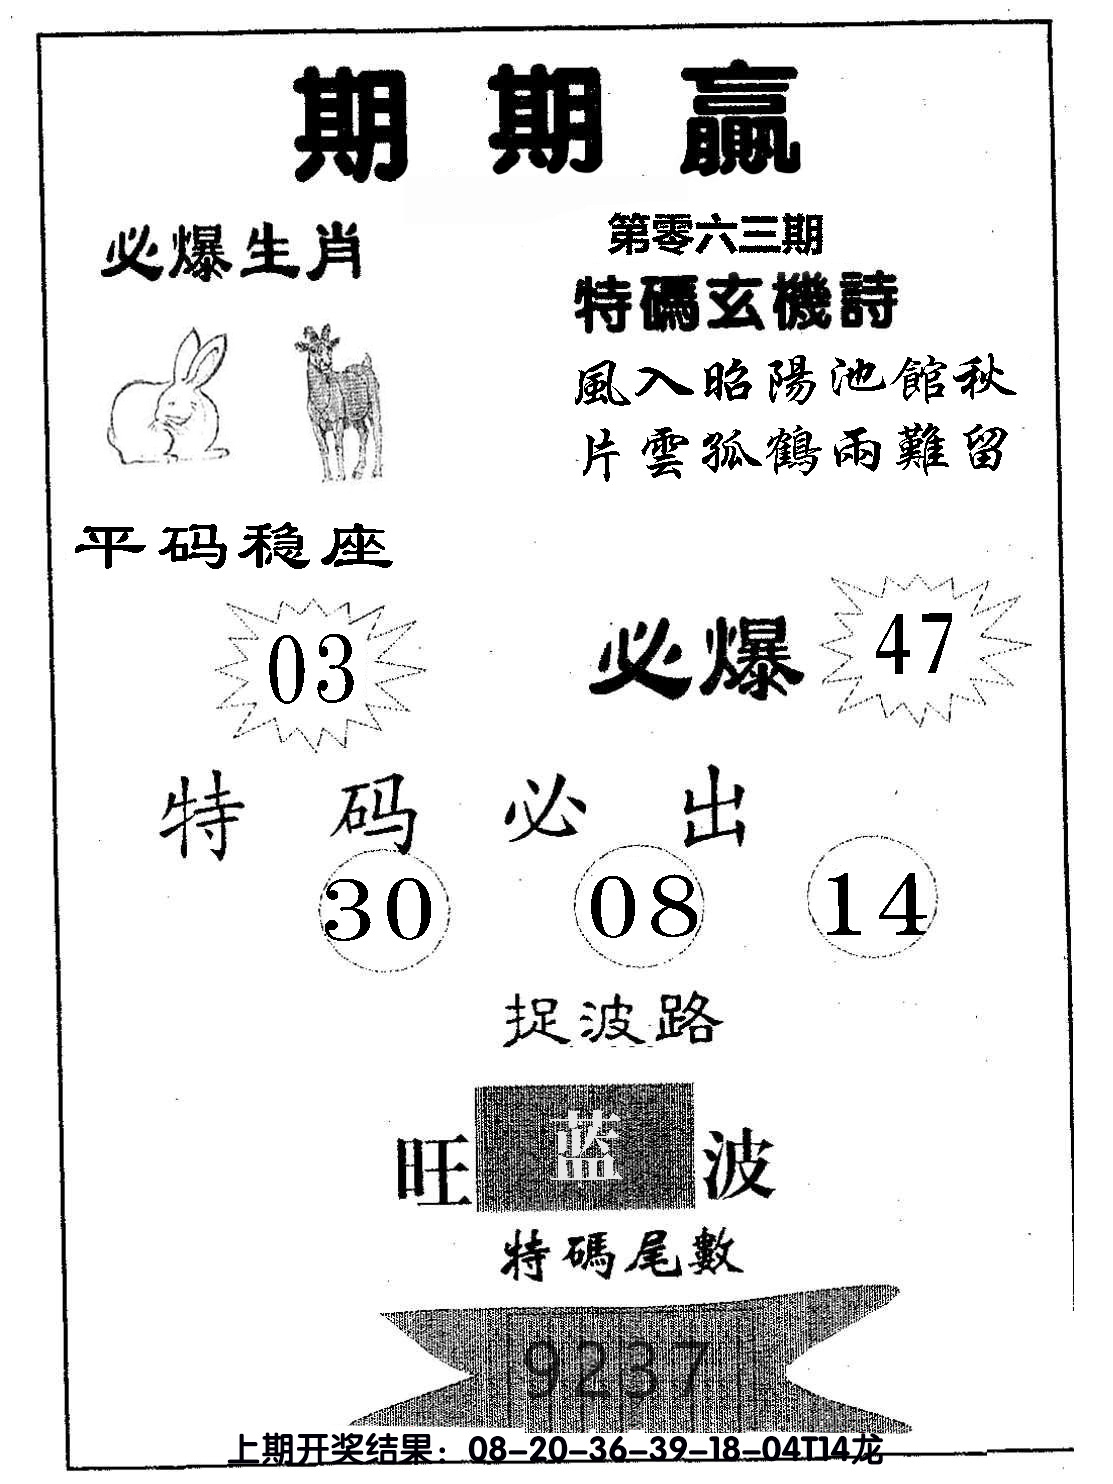 期期赢
必爆生肖
第零六三期
特碼玄機詩
風入昭陽池館秋
片雲孤鶴兩難留
平码稳座
03
必爆 47
特码必出
30 08 14
捉波路
旺蓝波
特碼尾數
9237
上期开奖结果：08-20-36-39-18-04T14龙